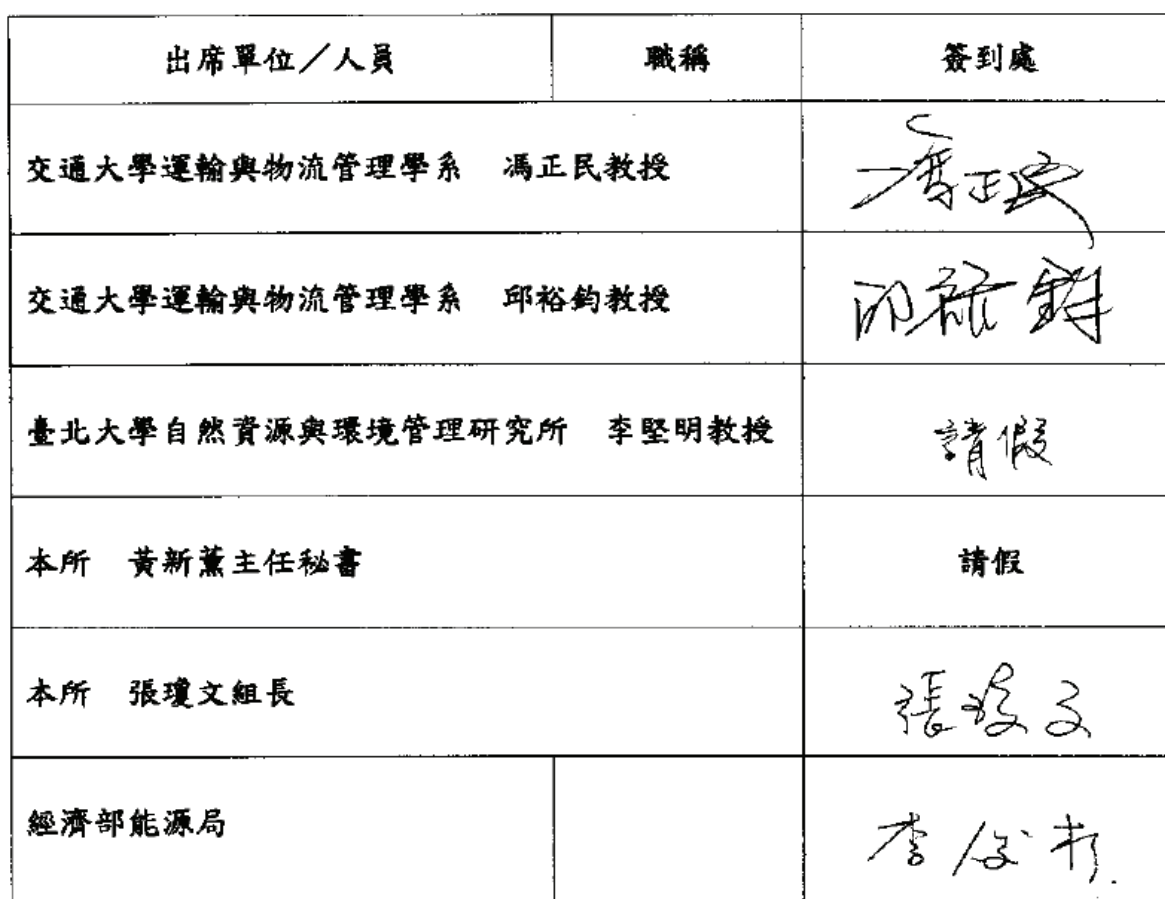 出席單位／人員 職稱 簽到處
交通大學運輸與物流管理學系 馮正民教授 馮正民
交通大學運輸與物流管理學系 邱裕鈞教授 邱裕鈞
臺北大學自然資源與環境管理研究所 李堅明教授 請假
本所 黃新薰主任秘書 請假
本所 張瓊文組長 張瓊文
經濟部能源局 李